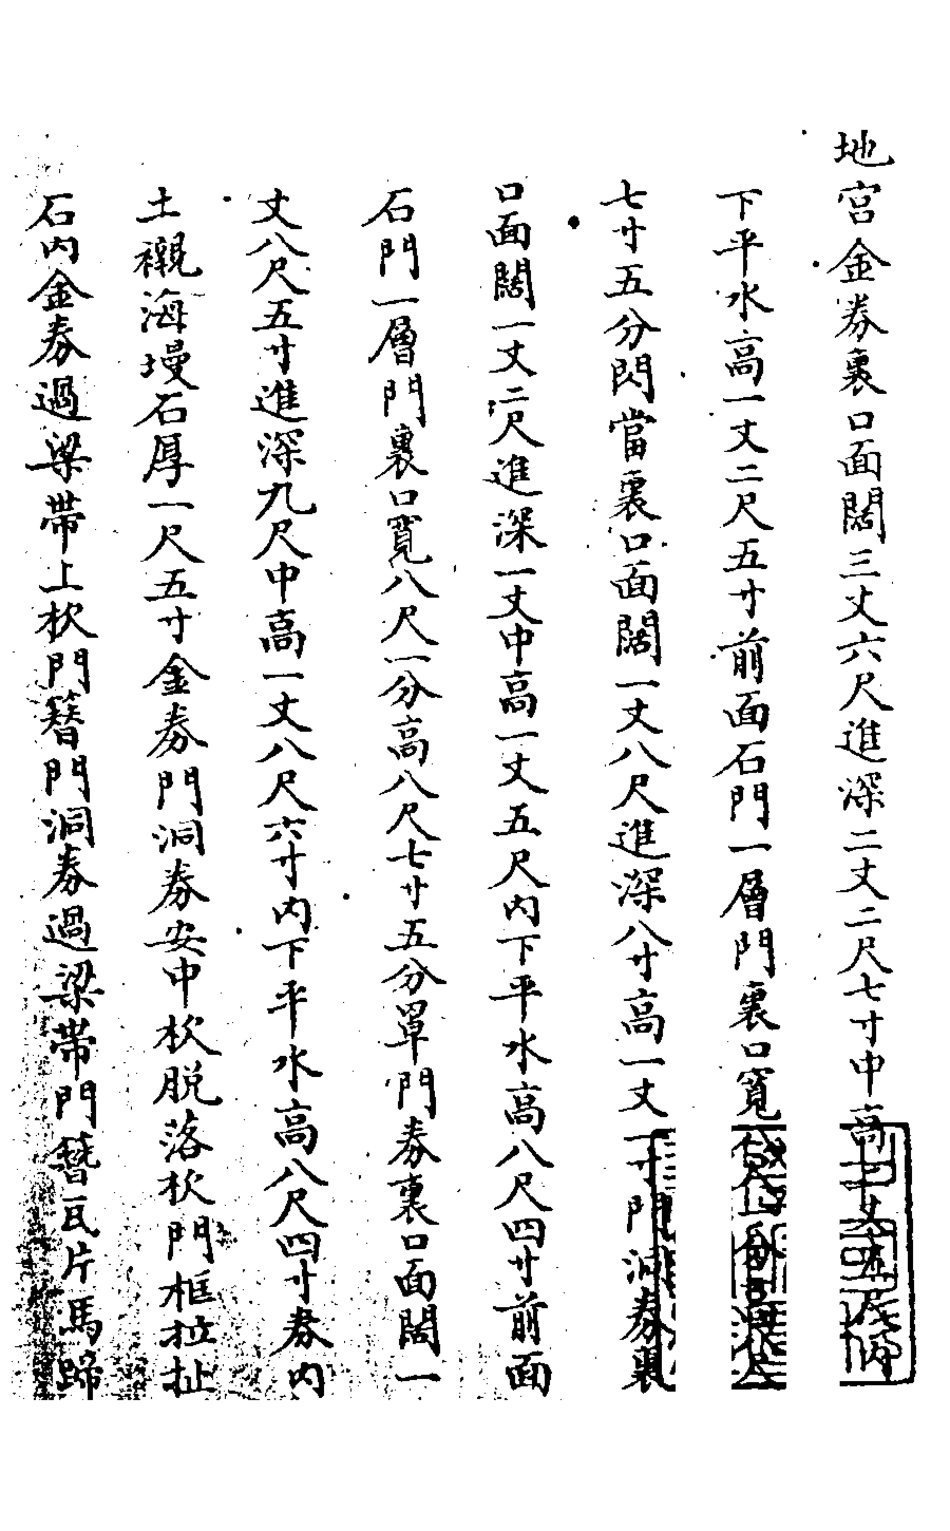 地宮金券裏口面闊三丈六尺進深二丈二尺七寸中高二丈五尺內
下平水高一丈二尺五寸前面石門一層門裏口寬八尺一分高八尺
七寸五分閃當裏口面闊一丈八尺進深八寸高一丈一寸門洞券裏
口面闊一丈二尺進深一丈中高一丈五尺内下平水高八尺四寸前面
石門一層門裏口寬八尺一分高八尺七寸五分罩門券裏口面闊一
丈八尺五寸進深九尺中高一丈八尺六寸内下平水高八尺四寸券内
土襯海墁石厚一尺五寸金券門洞券安中杴脱落杴門框拉扯
石内金券過梁帶上杴門簪門洞券過梁帶門簪瓦片馬蹄